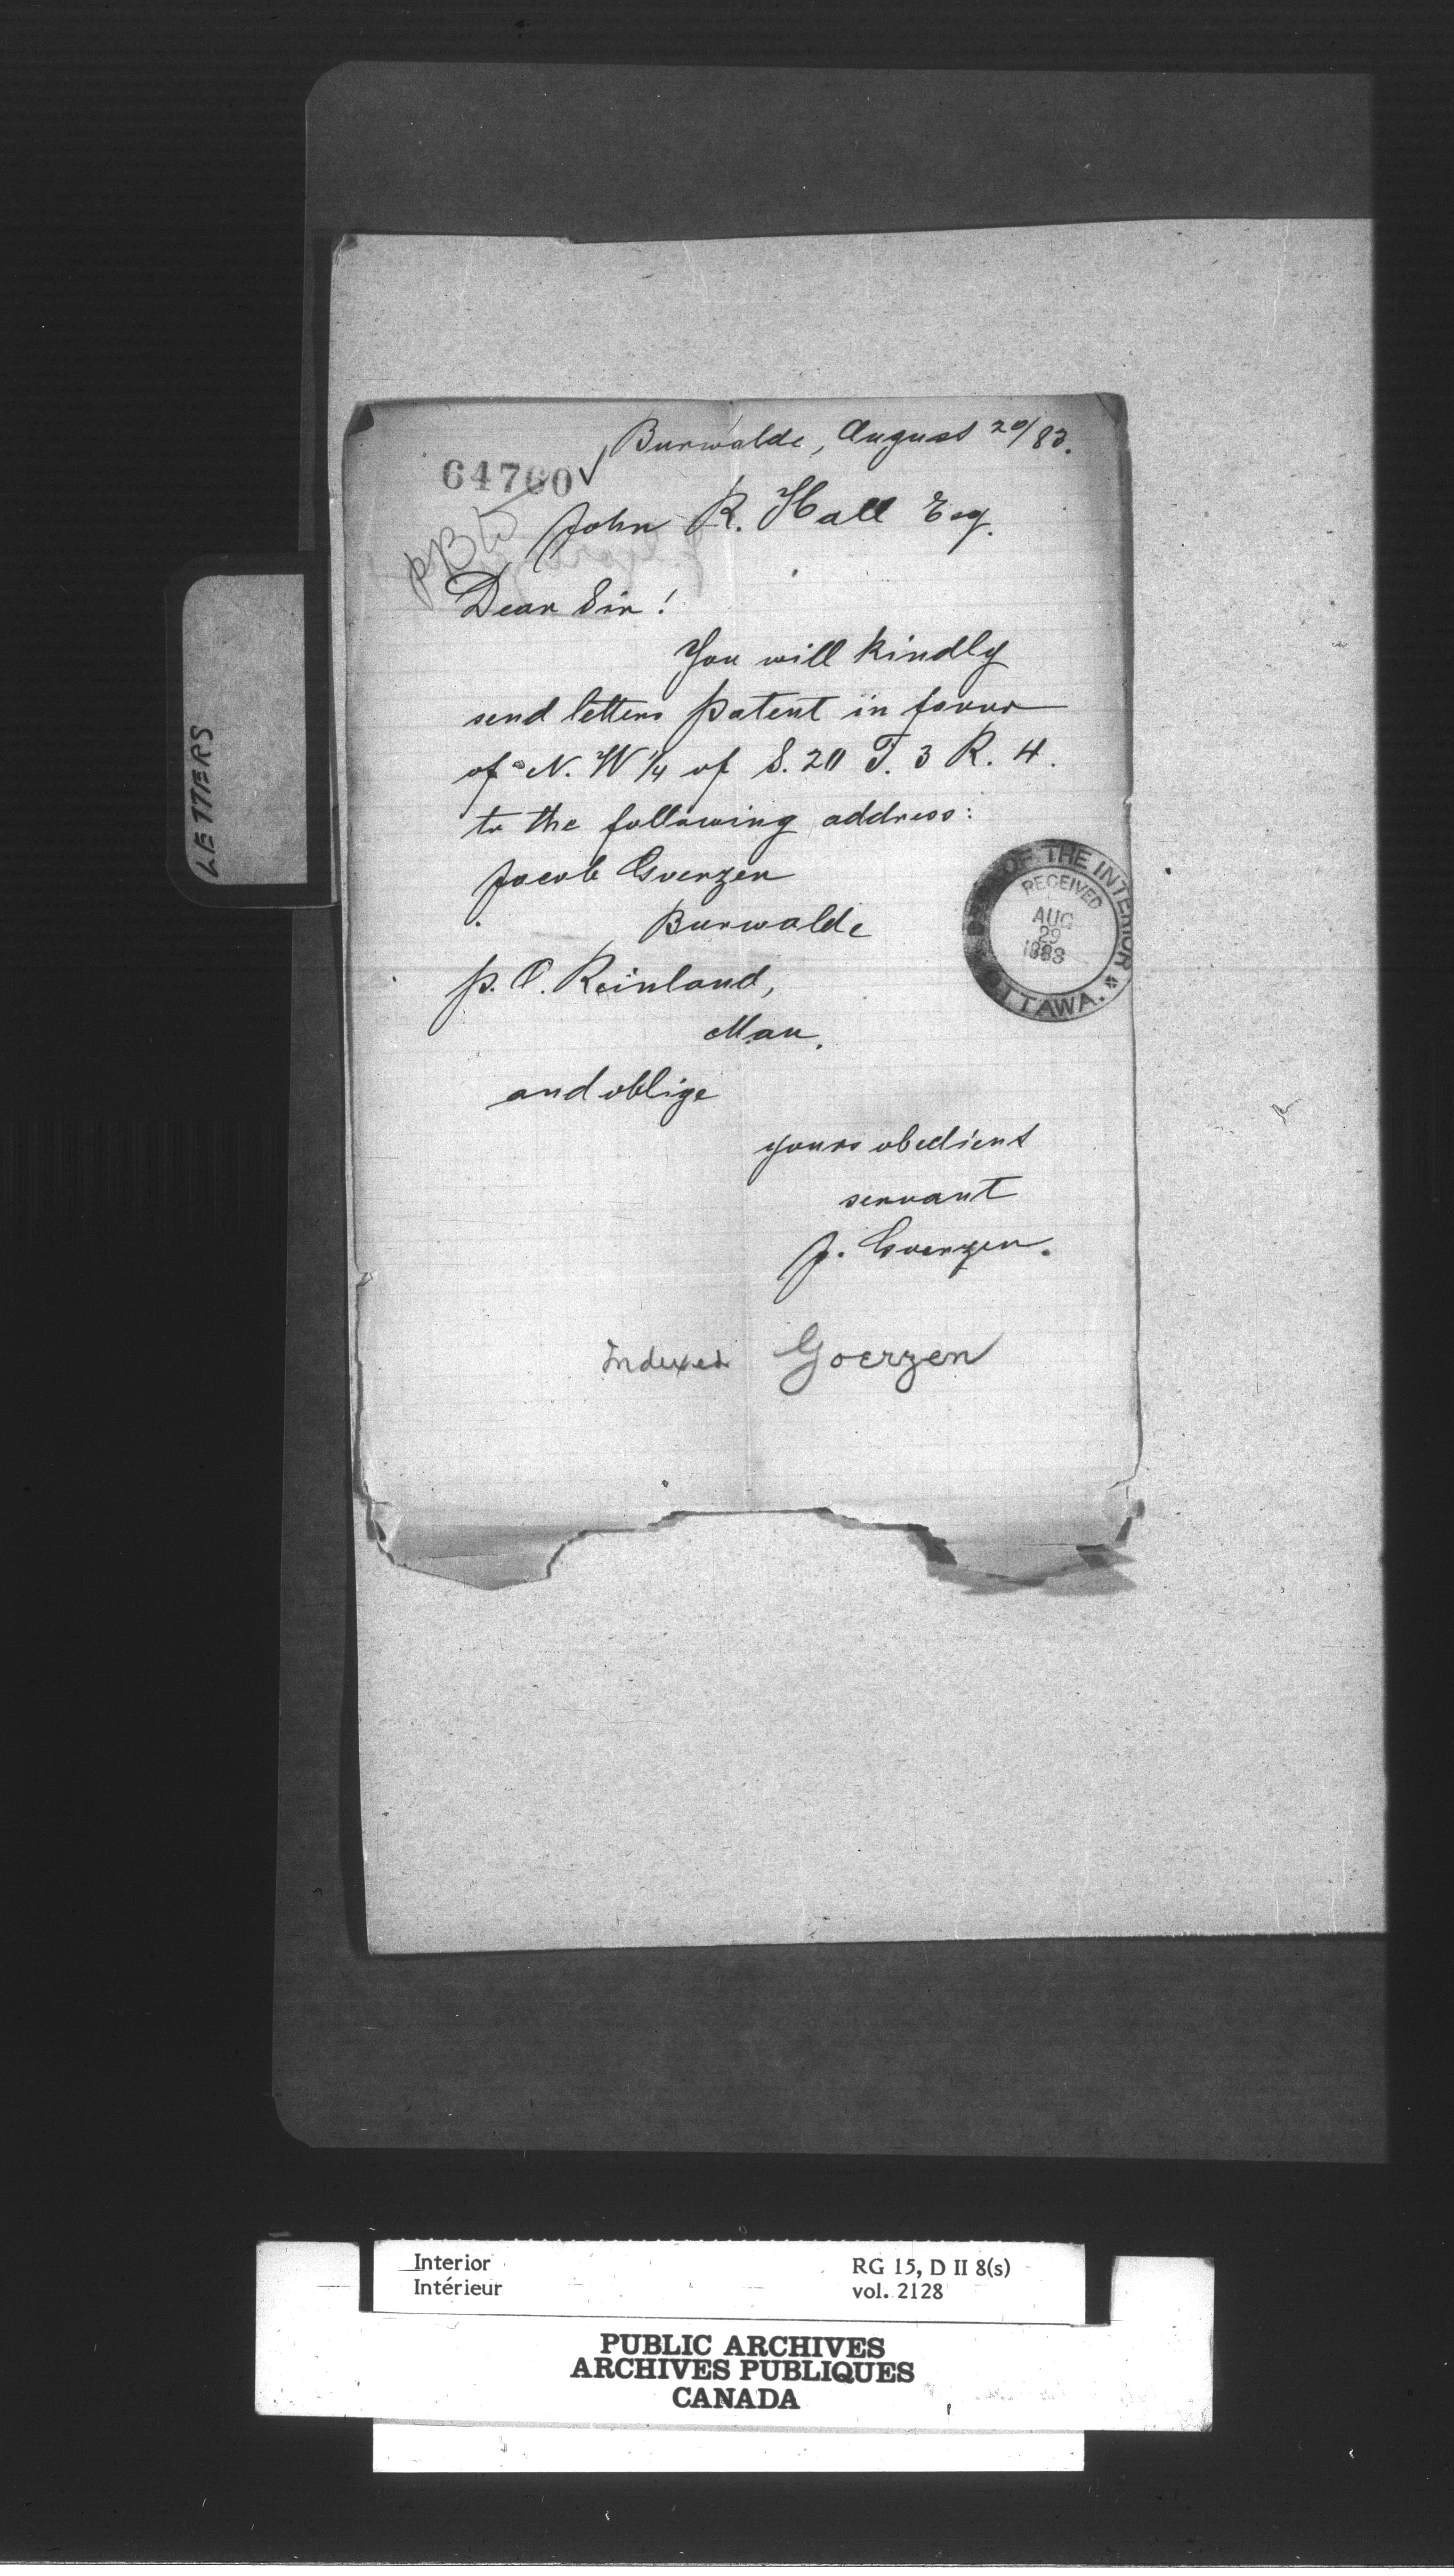 Burwalde, August 20/83.
64760
John R. Hall Esq.
Dear Sir!
You will kindly
send letters patent in favour
of N. W 1/4 of S. 20 T. 3 R. 4.
to the following address:
Jacob Goerzen
Burwalde
P. O. Reinland,
Man.
and oblige
yours obedient
servant
J. Goerzen.
Indexed Goerzen
DEPT. OF THE INTERIOR * OTTAWA.
RECEIVED
AUG
29
1883
LETTERS
Interior
Intérieur
RG 15, D II 8(s)
vol. 2128
PUBLIC ARCHIVES
ARCHIVES PUBLIQUES
CANADA